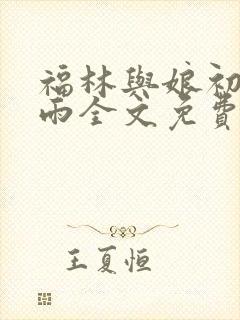 福林與娘初
雨全文免費
王夏恒